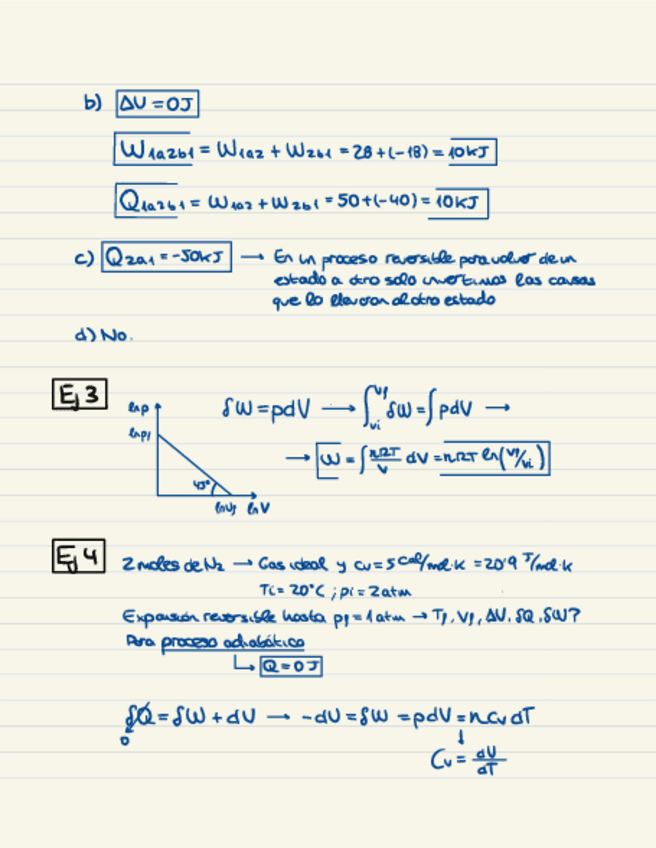 b) ΔU = 0J
W1a2b1 = W1a2 + W2b1 = 28 + (-18) = 10kJ
Q1a2b1 = W1a2 + W2b1 = 50 + (-40) = 10kJ
c) Q2a1 = -50kJ → En un proceso reversible para volver de un
estado a otro solo invertimos las causas
que lo llevaron al otro estado
d) No.
Ej 3
lnp
lnpi
45°
lnVf lnV
δW = pdV → ∫vi^vf δW = ∫pdV →
→ W = ∫ nRT/V dV = nRT ln(Vf/Vi)
Ej 4
2 moles de N2 → Gas ideal y cv = 5 cal/mol·K = 20'9 J/mol·K
Ti = 20°C ; pi = 2atm
Expansión reversible hasta pf = 1 atm → Tf, Vf, ΔU, δQ, δW?
Para proceso adiabático
↳ Q = 0J
δQ = δW + dU → -dU = δW = pdV = nCvdT
0
↓
Cv = dU/dT